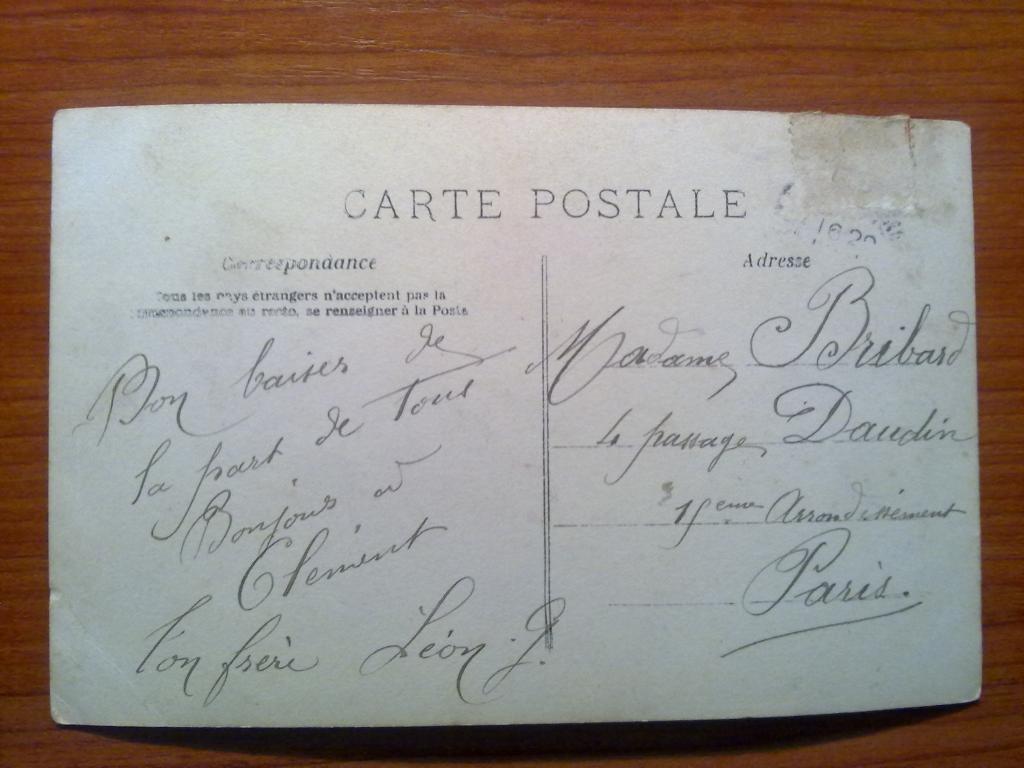 CARTE POSTALE
Correspondance
Tous les pays étrangers n'acceptent pas la
correspondance au recto, se renseigner à la Poste
Bon baiser de
la part de tous
Bonjour a
Clément
Ton frère Léon. J.
Adresse
Madame Bribard
4 passage Daudin
15eme Arrondissement
Paris.